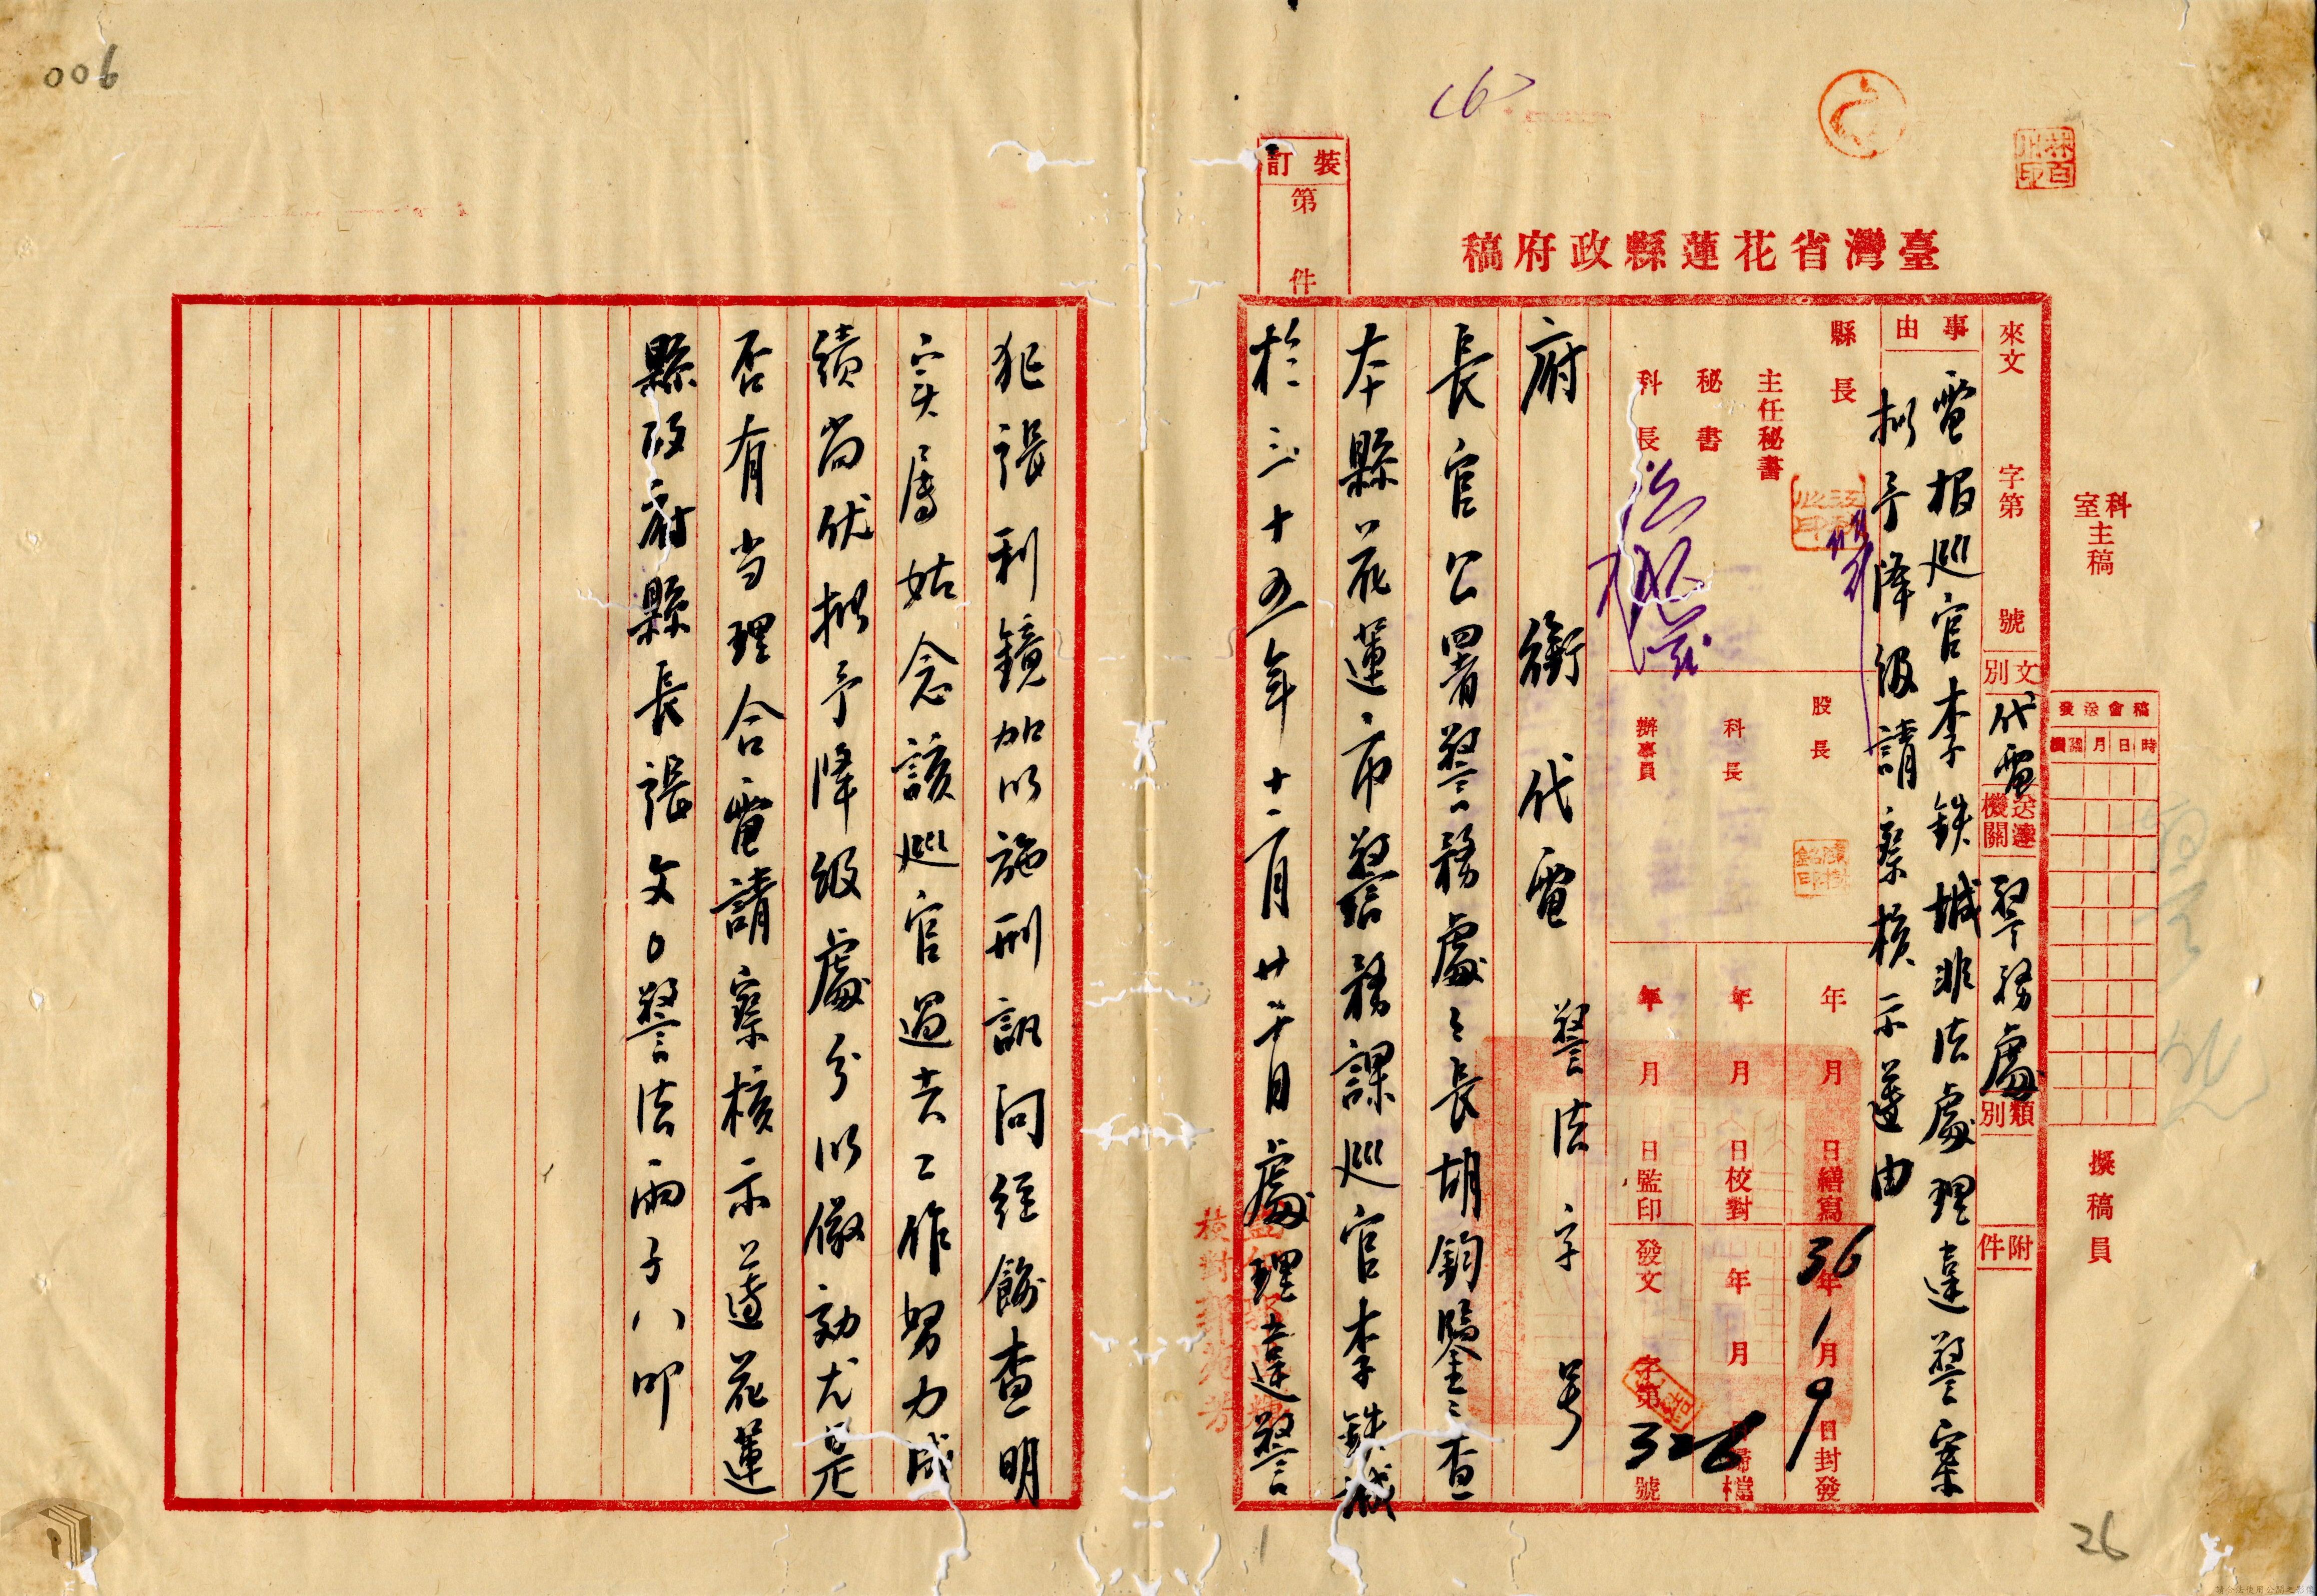 006
(6)
裝訂
第 件
臺灣省花蓮縣政府稿
科室主稿
擬稿員
稿會送發
時日月
來文 字第 號
文別 代電
送達機關 警務處
類別
附件
事由
電報巡官李鉄城非法處理違警案
拟予降級請察核示遵由
縣長
主任秘書
秘書
科長
股長
科長
辦事員
年月日繕寫
年月日校對
年月日監印
36年1月9日封發
年月日歸檔
發文 字第326號
府銜代電 警法字 号
長官公署警務處々長胡鈞鑒:查
本縣花蓮市警務課巡官李鉄城
於三十五年十二月廿 日處理違警
犯張利鏡加以施刑訊问經飭查明
実属姑念該巡官過去工作努力成
績尚优拟予降級處分以儆効尤是
否有当理合電請察核示遵花蓮
縣政府縣長張文〇警法雨子八叩
校對
1
26